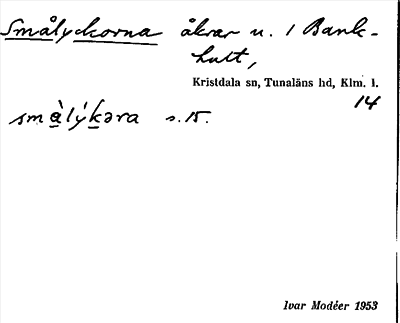 Smålyckorna åkrar u. 1 Bank-
hult,
Kristdala sn, Tunaläns hd, Klm. l.
14
smàlýkəra s. 15.
Ivar Modéer 1953